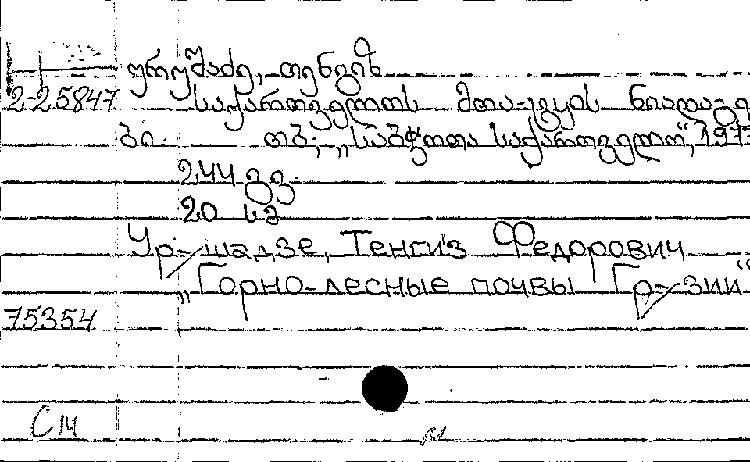 ურუშაძე, თენგიზ
225847 საქართველოს მთა-ტყის ნიადაგე
ბი. თბ., „საბჭოთა საქართველო“, 197
244 გვ.
20 სმ
Урушадзе, Тенгиз Федорович
„Горно-лесные почвы Грузии“
75354
C 14